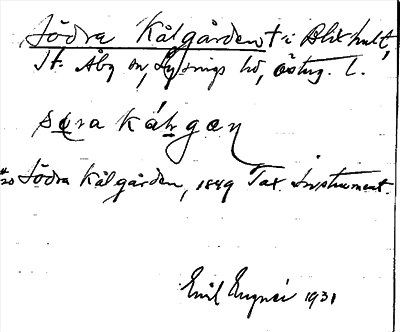 Södra Kålgården t i Blixhult,
St. Åby sn, Lysings hd, Östrg. l.
søra káḥgan
Södra Kålgården, 1849 Tax Instrument.
Emil 1931